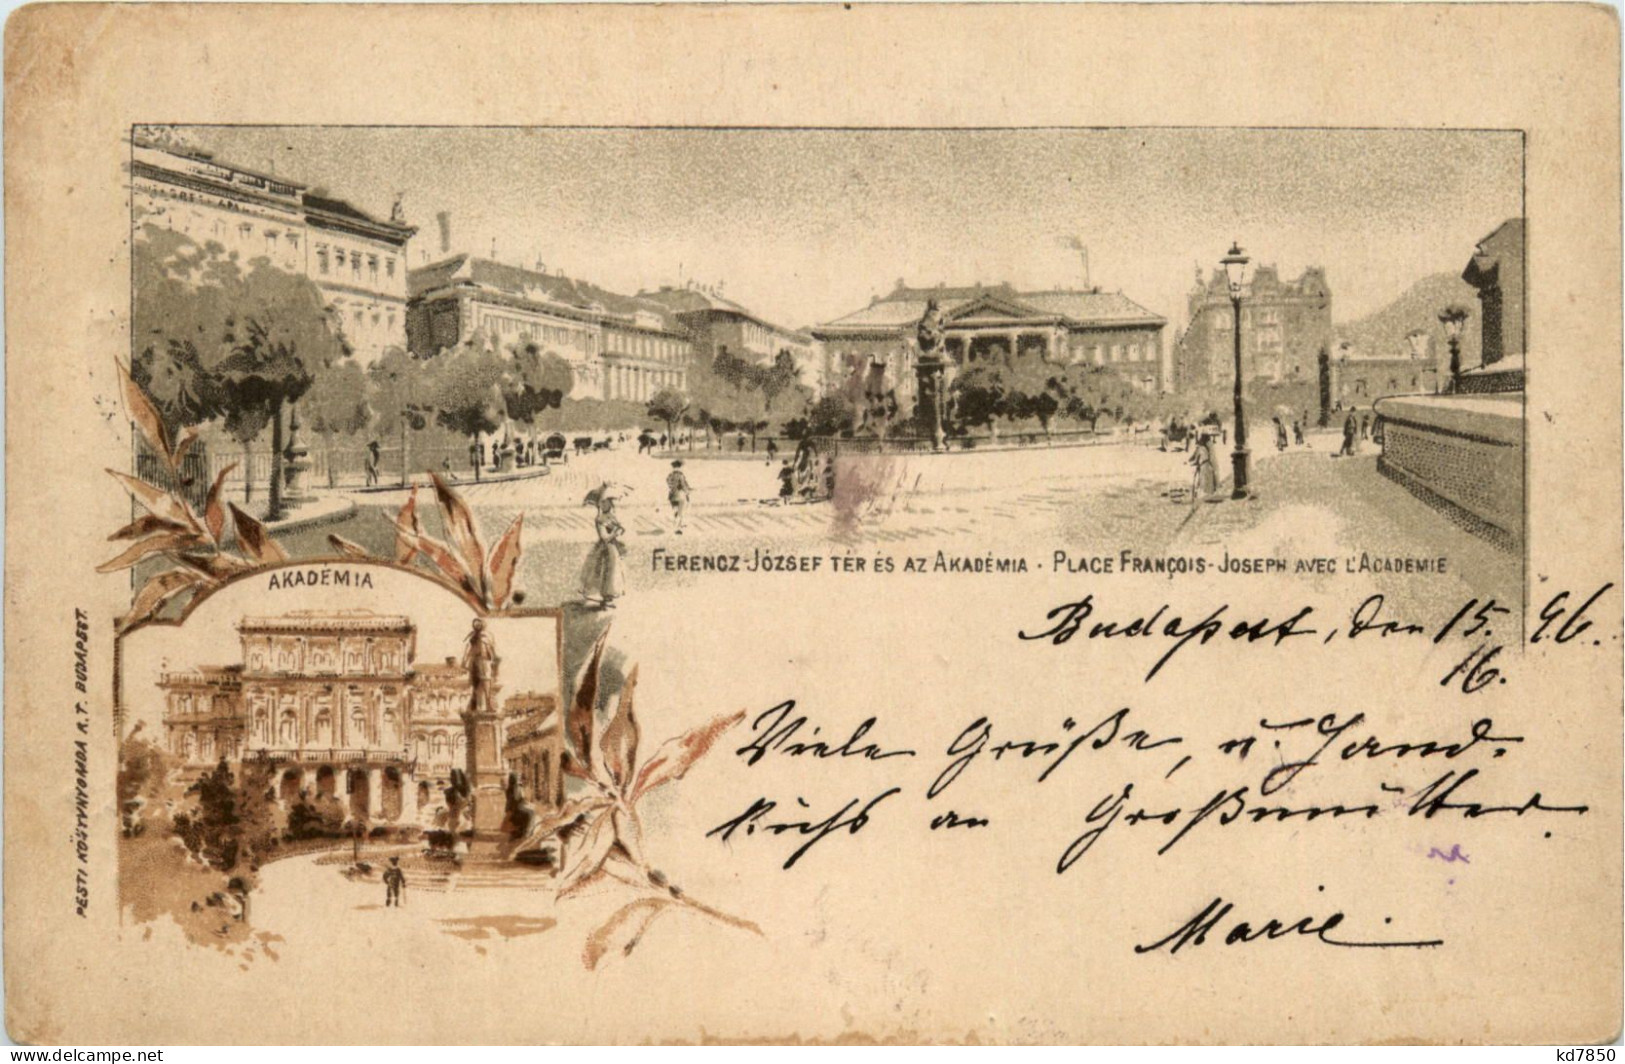 FERENCZ-JÓZSEF TÉR ÉS AZ AKADÉMIA · PLACE FRANÇOIS-JOSEPH AVEC L'ACADEMIE
AKADÉMIA
PESTI KÖNYVNYOMDA R.T. BUDAPEST.
Budapest, den 15. 96.
16.
Viele Grüße, u. Hand-
kuß an Großmutter.
Marie.
http://www.ansichtskarten-center.de/
kd7850